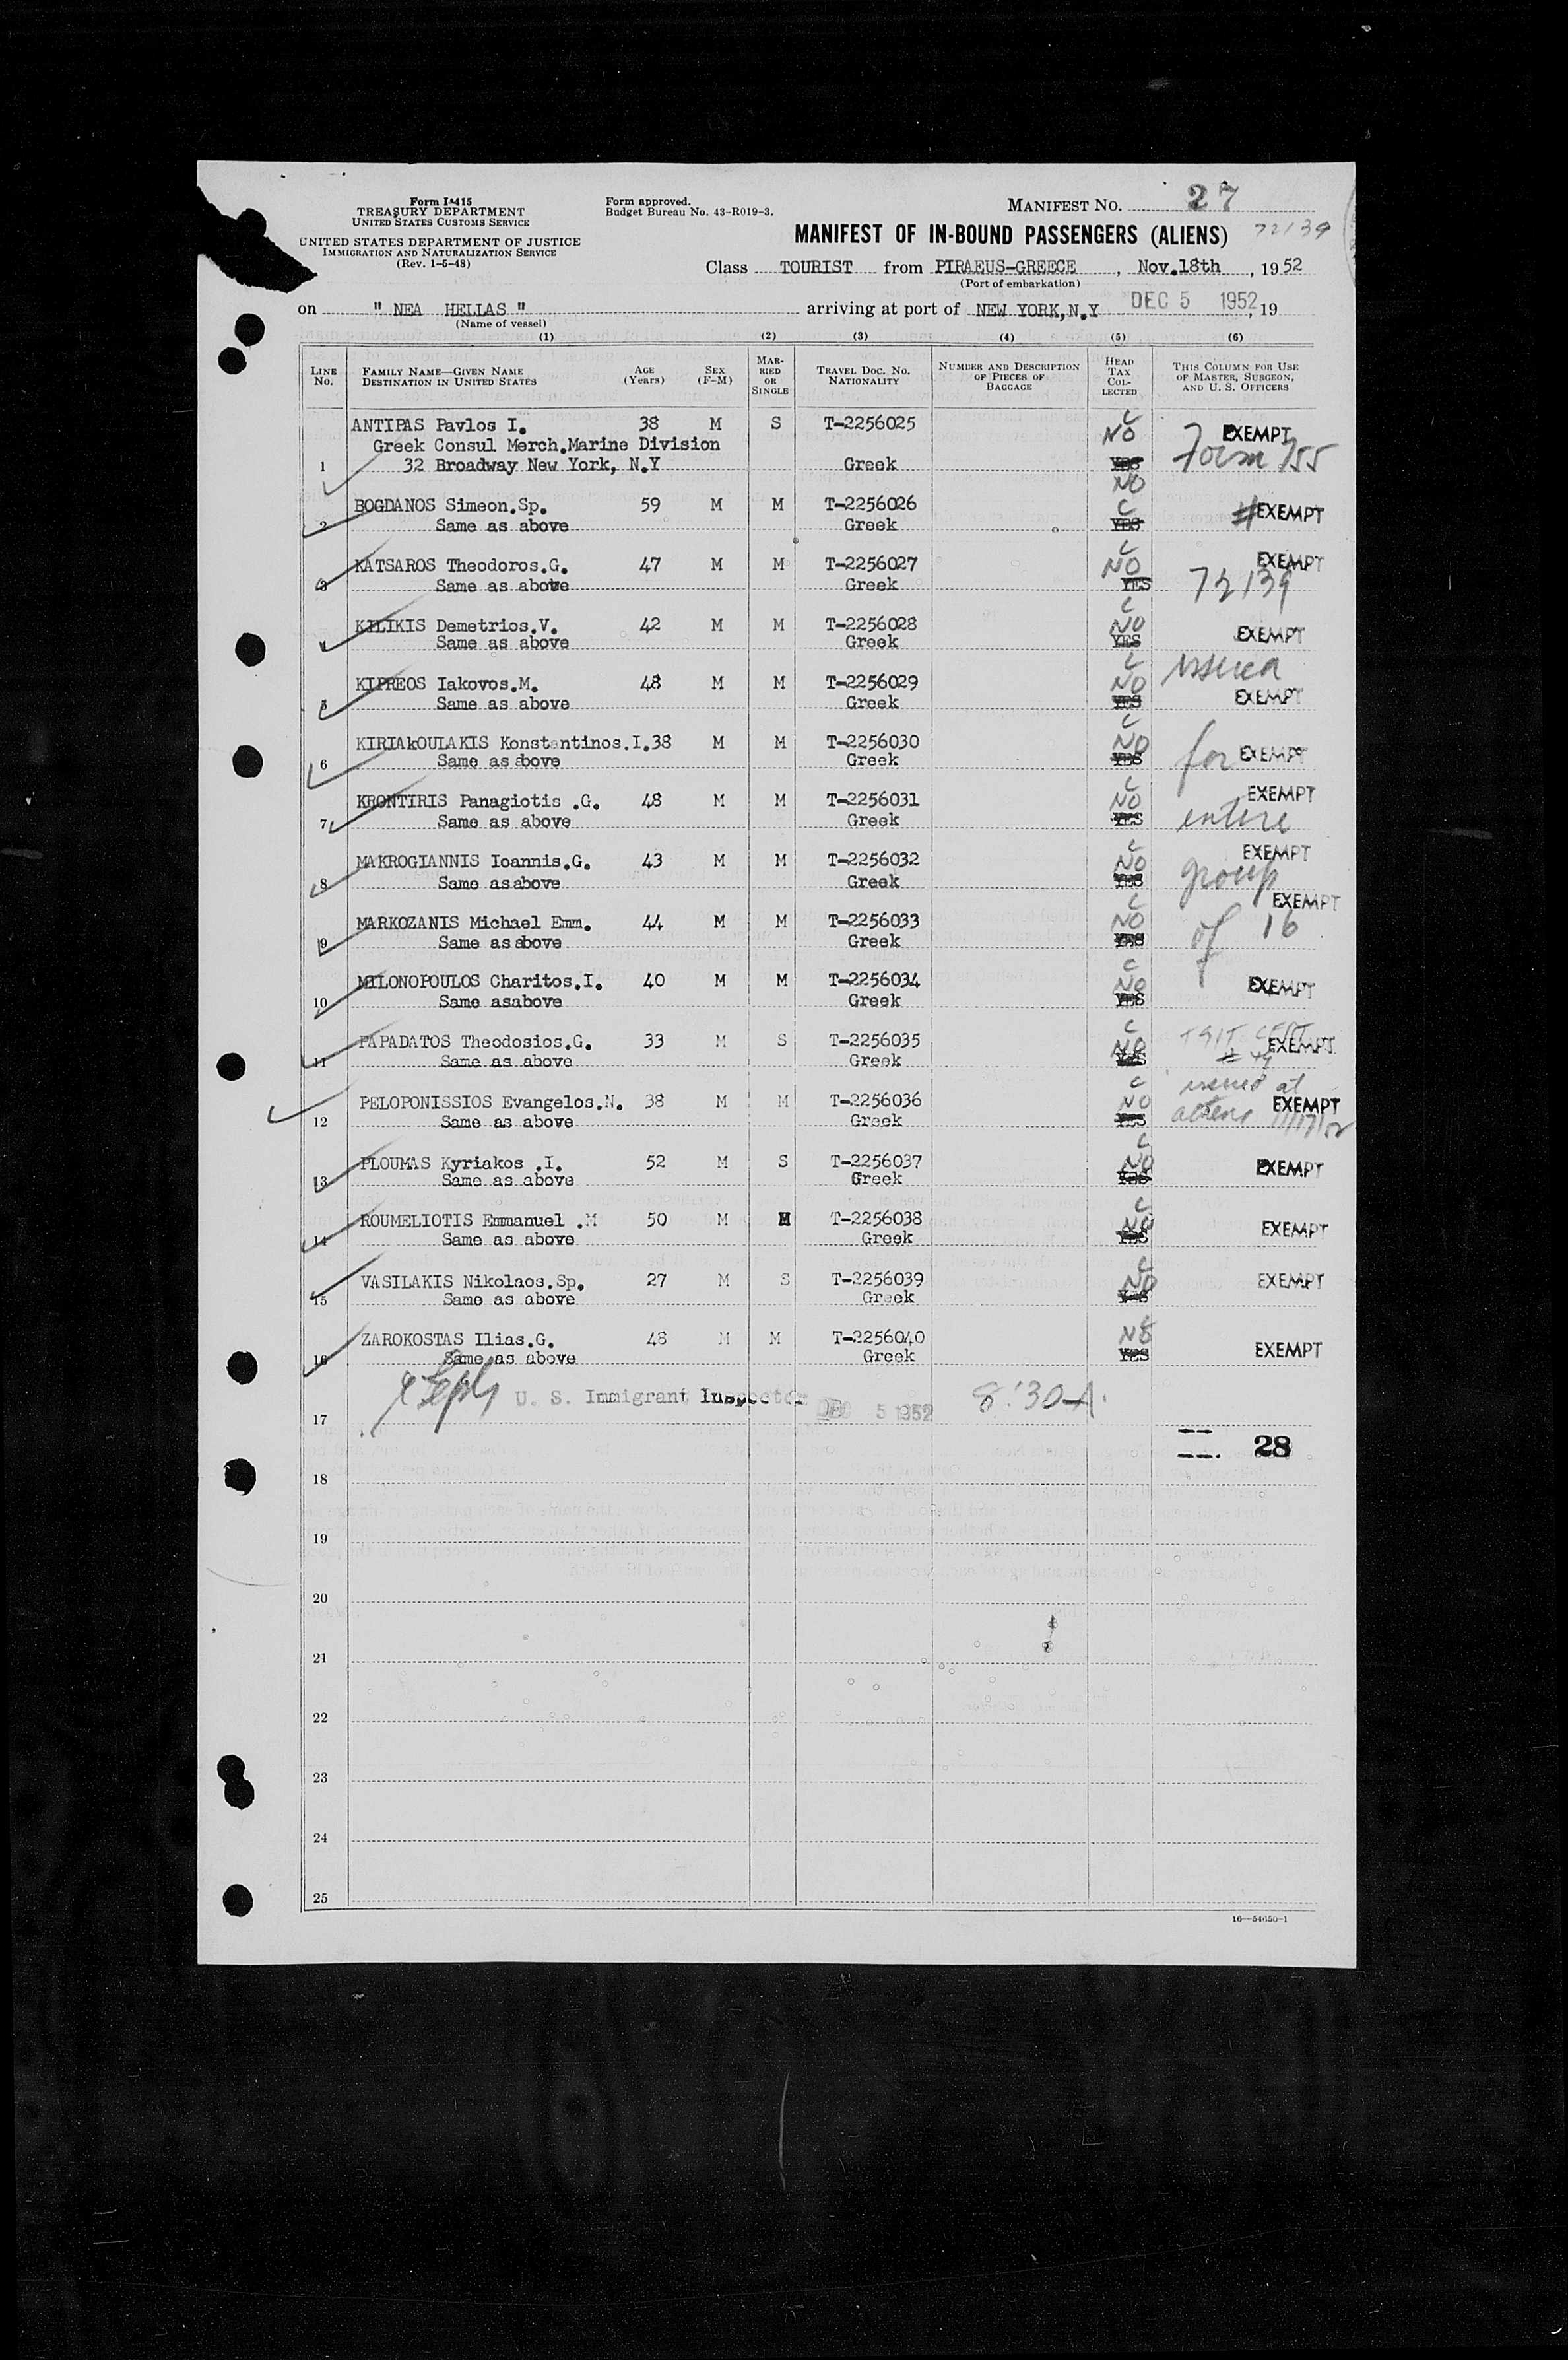 Form I-415
TREASURY DEPARTMENT
UNITED STATES CUSTOMS SERVICE
UNITED STATES DEPARTMENT OF JUSTICE
IMMIGRATION AND NATURALIZATION SERVICE
(Rev. 1-5-48)
Form approved.
Budget Bureau No. 43-R019-3.
MANIFEST NO. 27
MANIFEST OF IN-BOUND PASSENGERS (ALIENS) 72139
Class TOURIST from PIRAEUS-GREECE, Nov.18th, 1952
(Port of embarkation)
on " NEA HELLAS " arriving at port of NEW YORK,N.Y DEC 5 1952, 19
(Name of vessel)
(1) (2) (3) (4) (5) (6)
LINE No. FAMILY NAME—GIVEN NAME DESTINATION IN UNITED STATES AGE (Years) SEX (F-M) MARRIED OR SINGLE TRAVEL DOC. NO. NATIONALITY NUMBER AND DESCRIPTION OF PIECES OF BAGGAGE HEAD TAX COLLECTED THIS COLUMN FOR USE OF MASTER, SURGEON, AND U. S. OFFICERS
ANTIPAS Pavlos I. 38 M S T-2256025 C NO EXEMPT
Greek Consul Merch.Marine Division
1 32 Broadway New York, N.Y Greek YES Form 755
NO
BOGDANOS Simeon.Sp. 59 M M T-2256026 C # EXEMPT
2 Same as above Greek YES
KATSAROS Theodoros.G. 47 M M T-2256027 C NO EXEMPT
3 Same as above Greek YES 72139
KILIKIS Demetrios.V. 42 M M T-2256028 C NO EXEMPT
4 Same as above Greek YES
KIPREOS Iakovos.M. 48 M M T-2256029 C NO issued
5 Same as above Greek YES EXEMPT
KIRIAkOULAKIS Konstantinos.I.38 M M T-2256030 C NO
6 Same as above Greek YES for EXEMPT
KRONTIRIS Panagiotis .G. 48 M M T-2256031 C NO EXEMPT
7 Same as above Greek YES entire
MAKROGIANNIS Ioannis.G. 43 M M T-2256032 C NO EXEMPT
8 Same asabove Greek YES group
MARKOZANIS Michael Emm. 44 M M T-2256033 C NO EXEMPT
9 Same asabove Greek YES of 16
MILONOPOULOS Charitos.I. 40 M M T-2256034 C NO EXEMPT
10 Same asabove Greek YES
PAPADATOS Theodosios.G. 33 M S T-2256035 C NO CERT EXEMPT
11 Same as above Greek YES # 49
issued at
PELOPONISSIOS Evangelos.N. 38 M M T-2256036 C NO EXEMPT
12 Same as above Greek YES athens 11/17/52
PLOUMAS Kyriakos .I. 52 M S T-2256037 C NO EXEMPT
13 Same as above Greek YES
ROUMELIOTIS Emmanuel .M 50 M M T-2256038 C NO EXEMPT
14 Same as above Greek YES
VASILAKIS Nikolaos.Sp. 27 M S T-2256039 C NO EXEMPT
15 Same as above Greek YES
ZAROKOSTAS Ilias.G. 48 M M T-2256040 NO
16 Same as above Greek YES EXEMPT
U. S. Immigrant Inspector DEC 5 1952 8:30 A.
17
28
18
19
20
21
22
23
24
25
16—54650-1